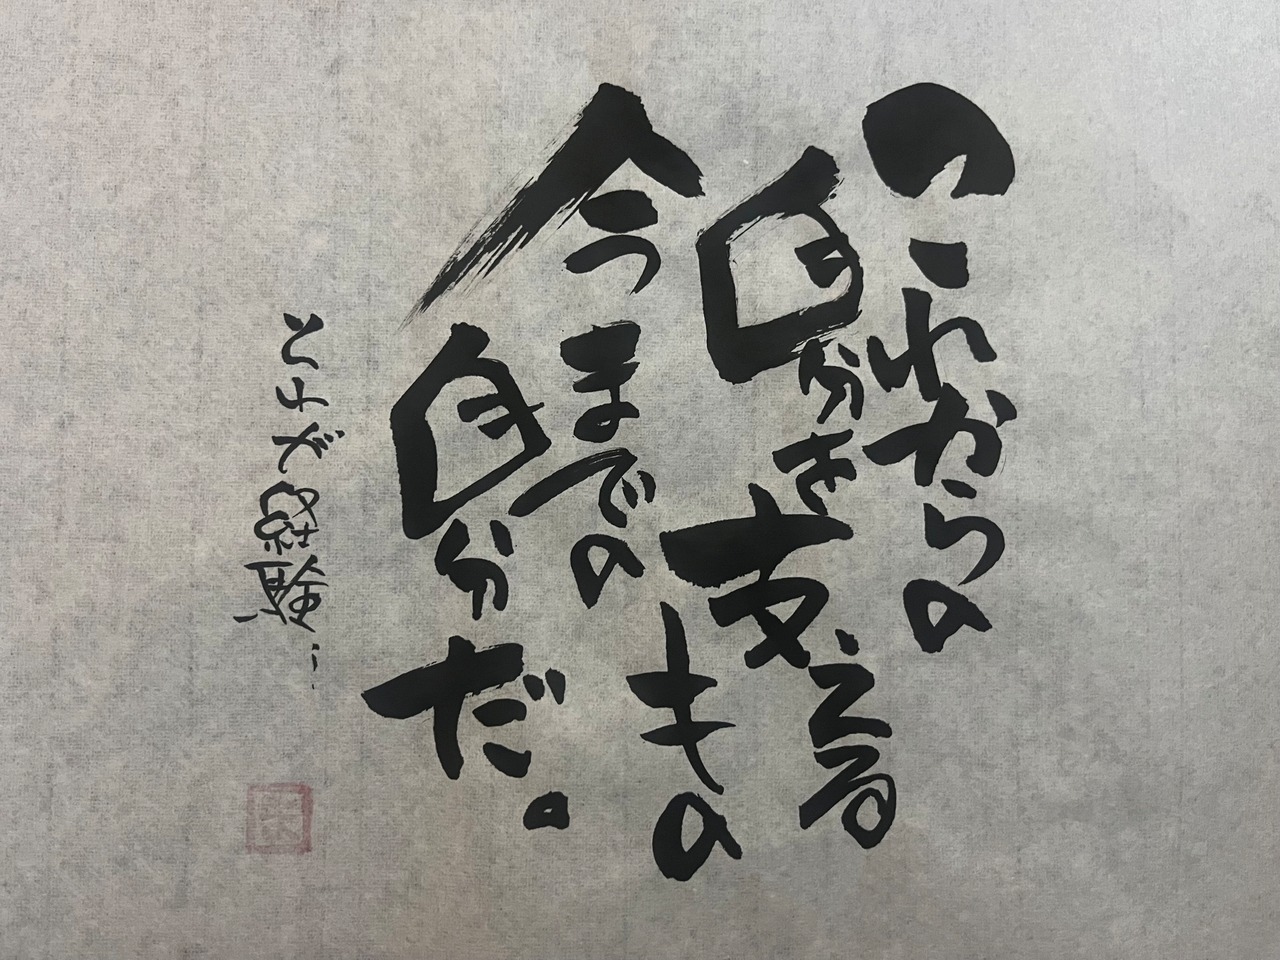 これからの
自分を支える
もの
今までの
自分だ。
経験…